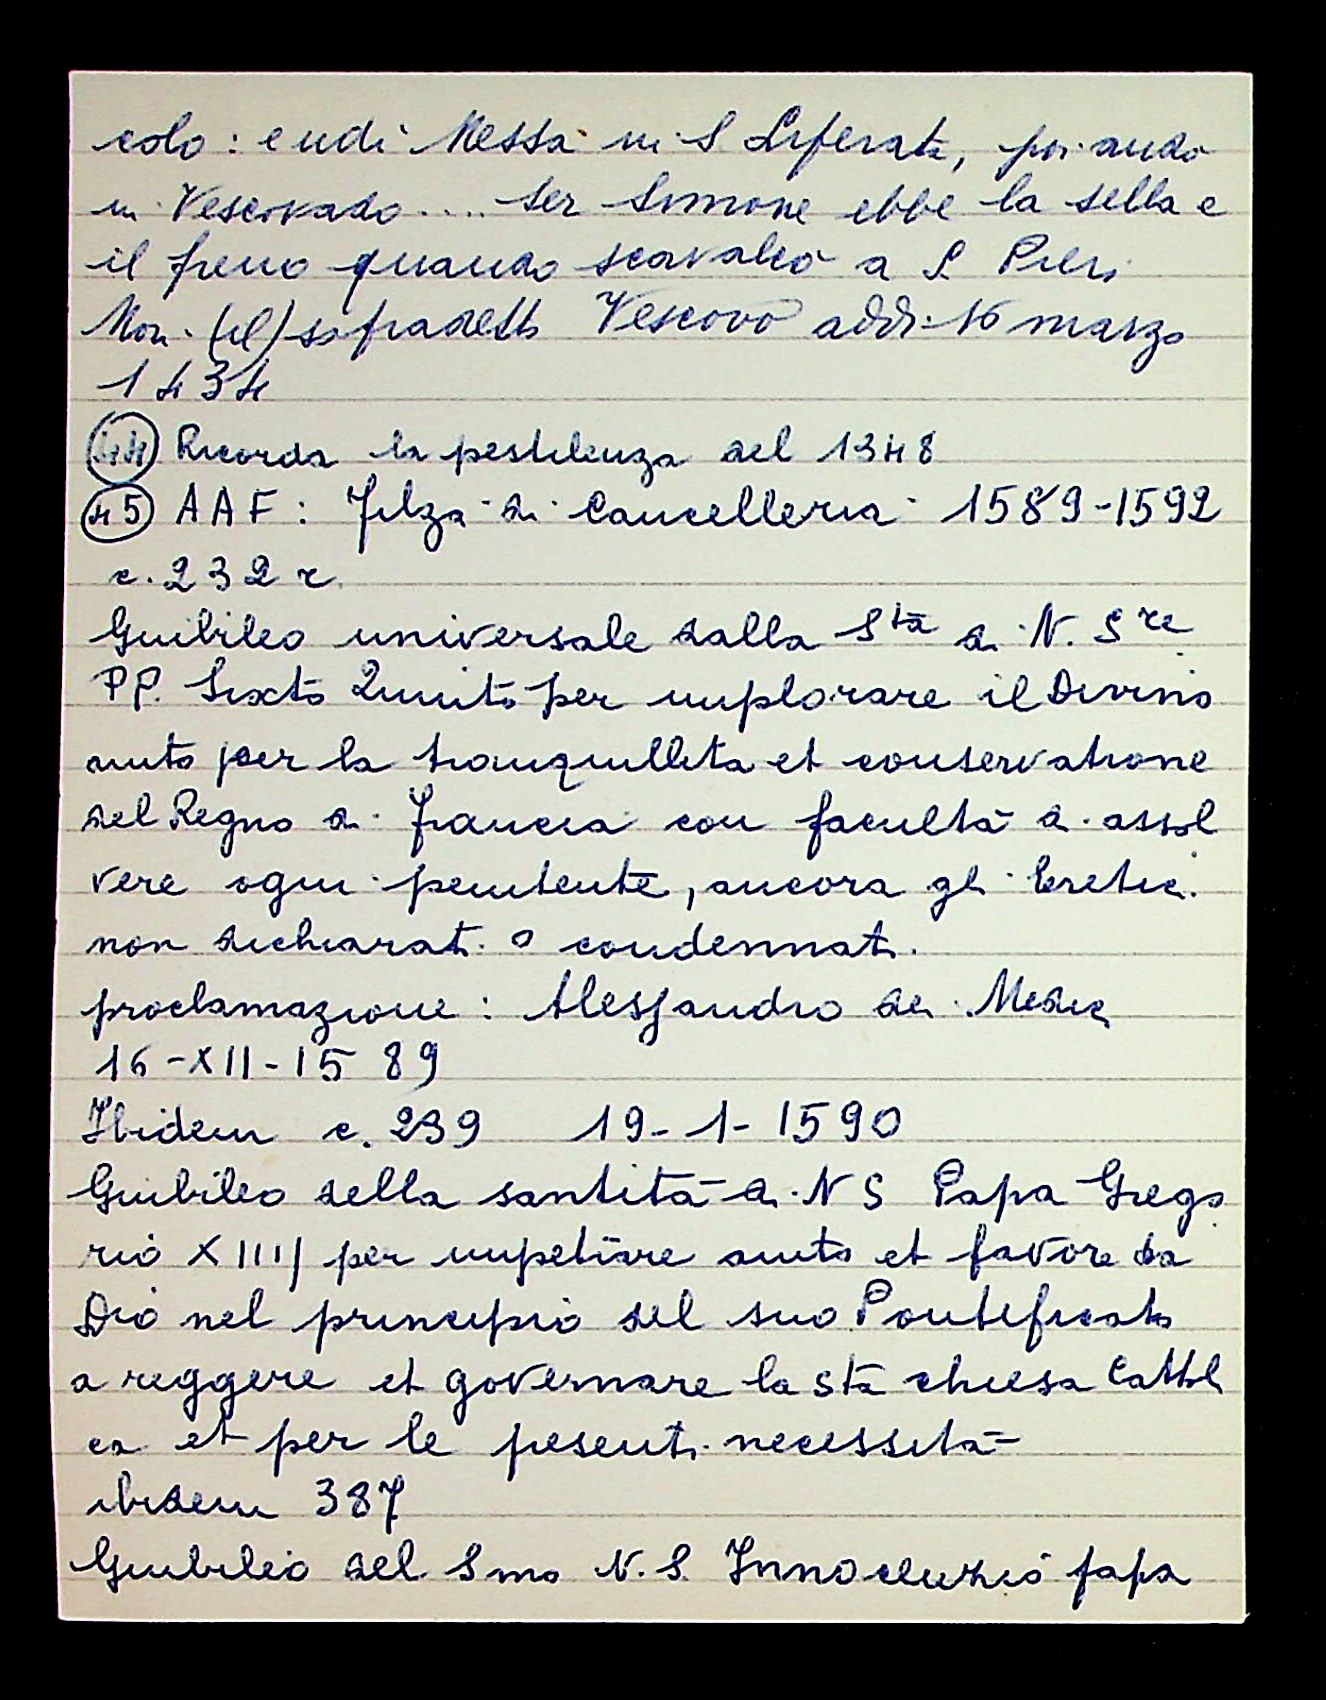 colo: e udi Messa in S Liperata, poi andò
in Vescovado.... Ser Simone ebbe la sella e
il freno quando scavalcò a S. Pier
Mon. (il) sopradetto Vescovo addi 16 marzo
1434
(44) Ricorda la pestilenza del 1348
(45) AAF: Filza di Cancelleria 1589-1592
c. 232 r.
Giubileo universale dalla Stà di N. Sre
PP. Sixto Quinto per implorare il Divino
aiuto per la tranquillità et conservatione
del Regno di Francia con facultà di assol
vere ogni penitente, ancora gli eretici
non dichiarati o condennati.
proclamazione: Alessandro dei Medici
16-XII-1589
Ibidem c. 239 19-1-1590
Giubileo della santità di N S Papa Grego
rio XIIIJ per impetrare aiuto et favore da
Dio nel principio del suo Pontificato
a reggere et governare la stà chiesa Cattoli
ca et per le presenti necessità
ibidem 387
Giubileo del Smo N.S. Innocenzio papa